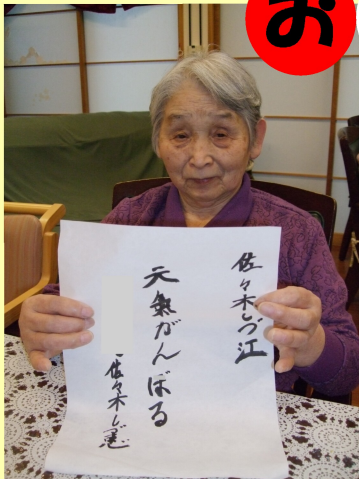 お
佐々木しづ江
元氣がんばる
佐々木しづ